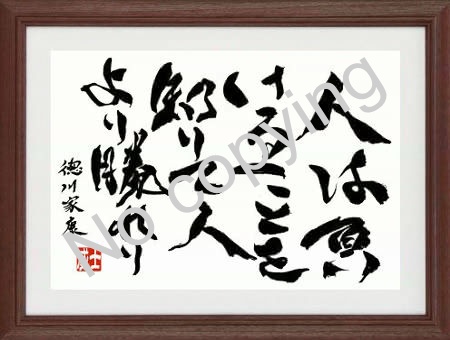 人は負
けることを
知りて人
より勝れり
徳川家康
No copying